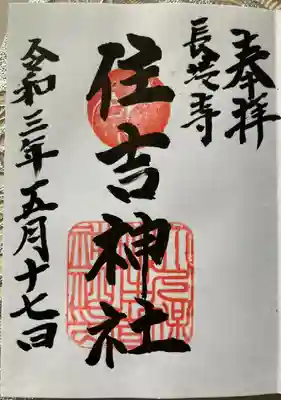 奉拝
長浜寺
住吉神社
令和三年五月十七日